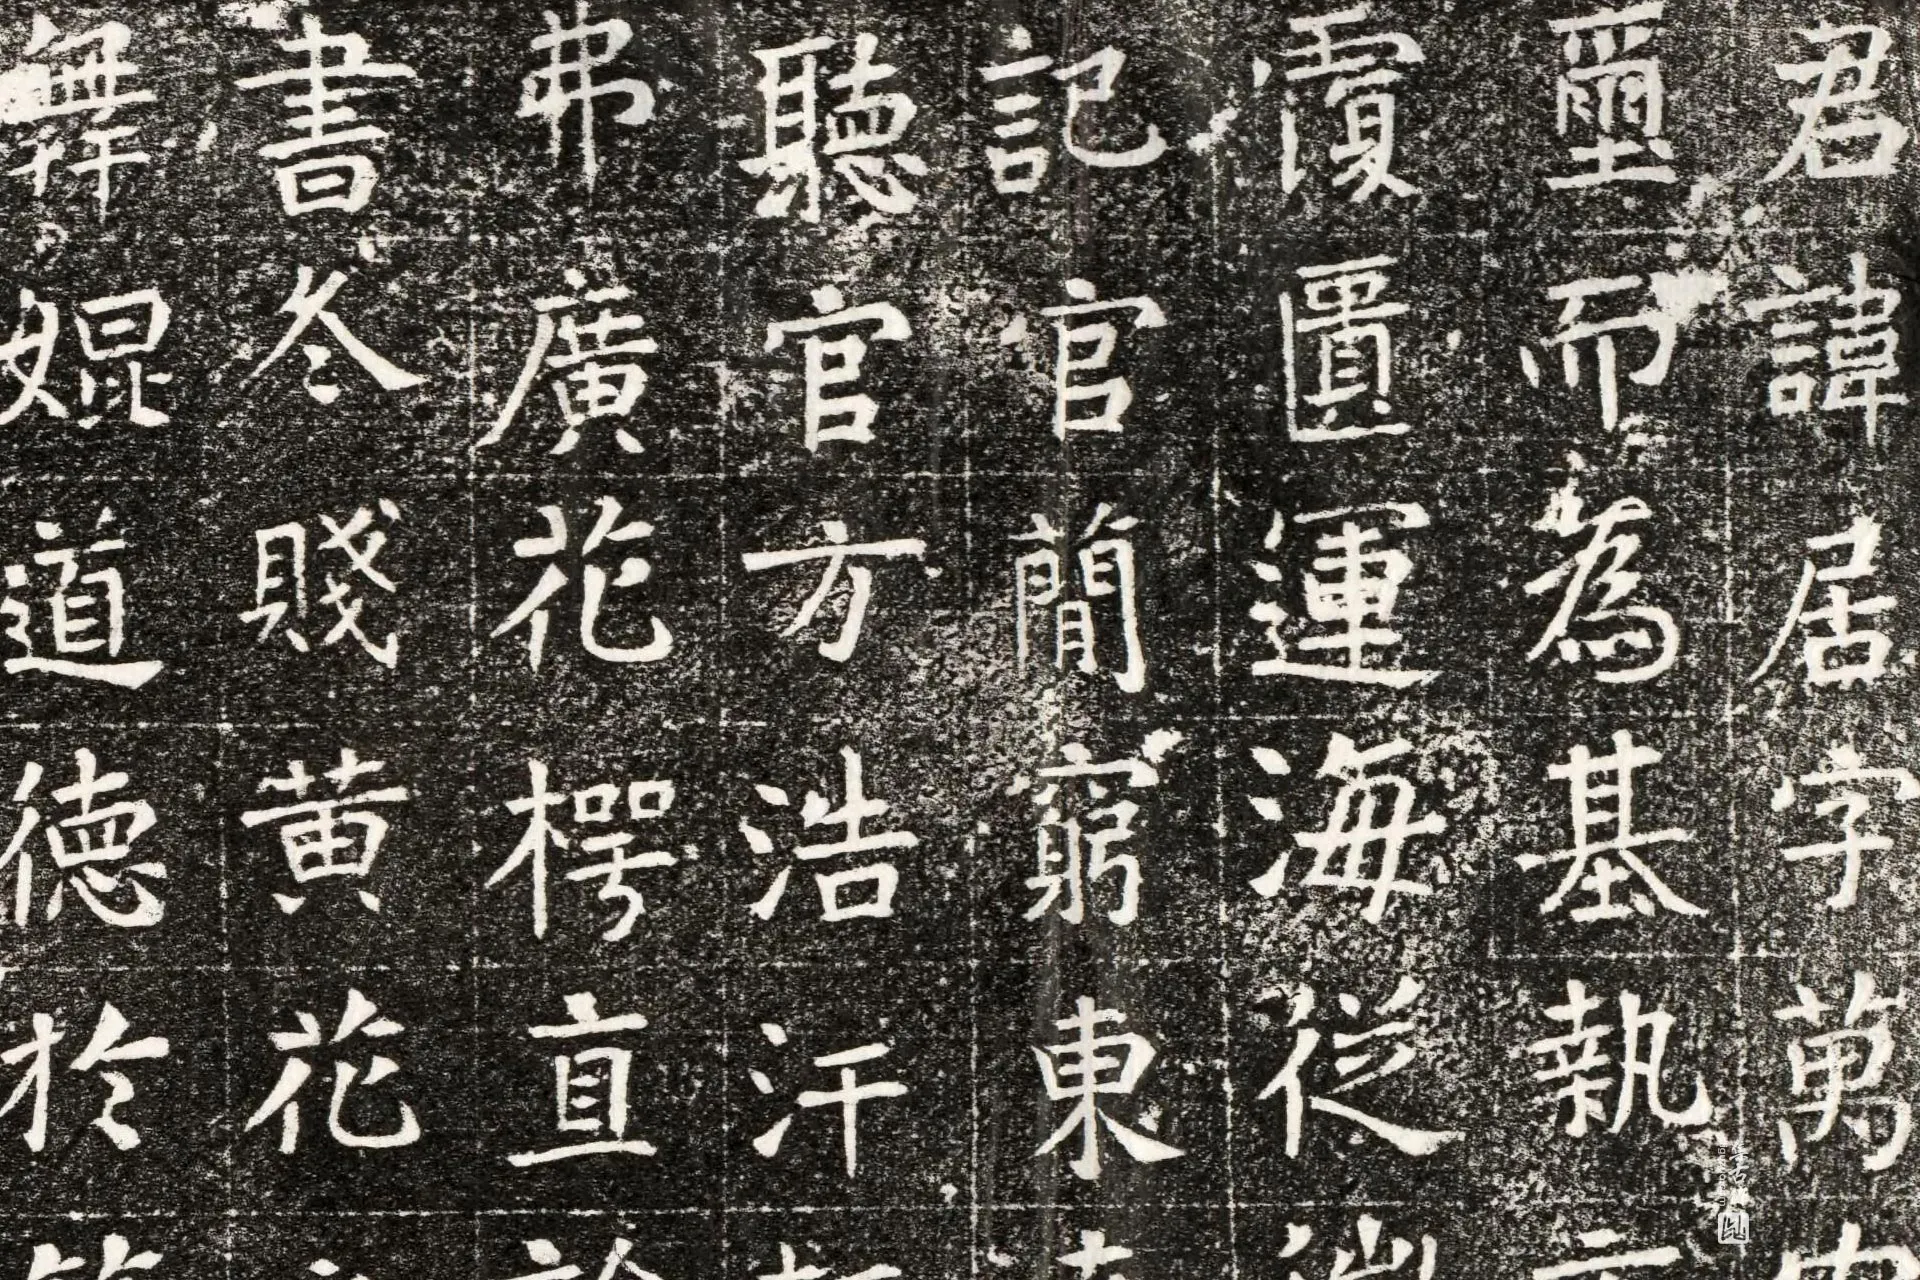 君諱居字萬
璽而為基執
濅匱運海從
記官簡窮東
聽官方浩汗
弗廣花樗直
書冬賤黄花
婫道德於